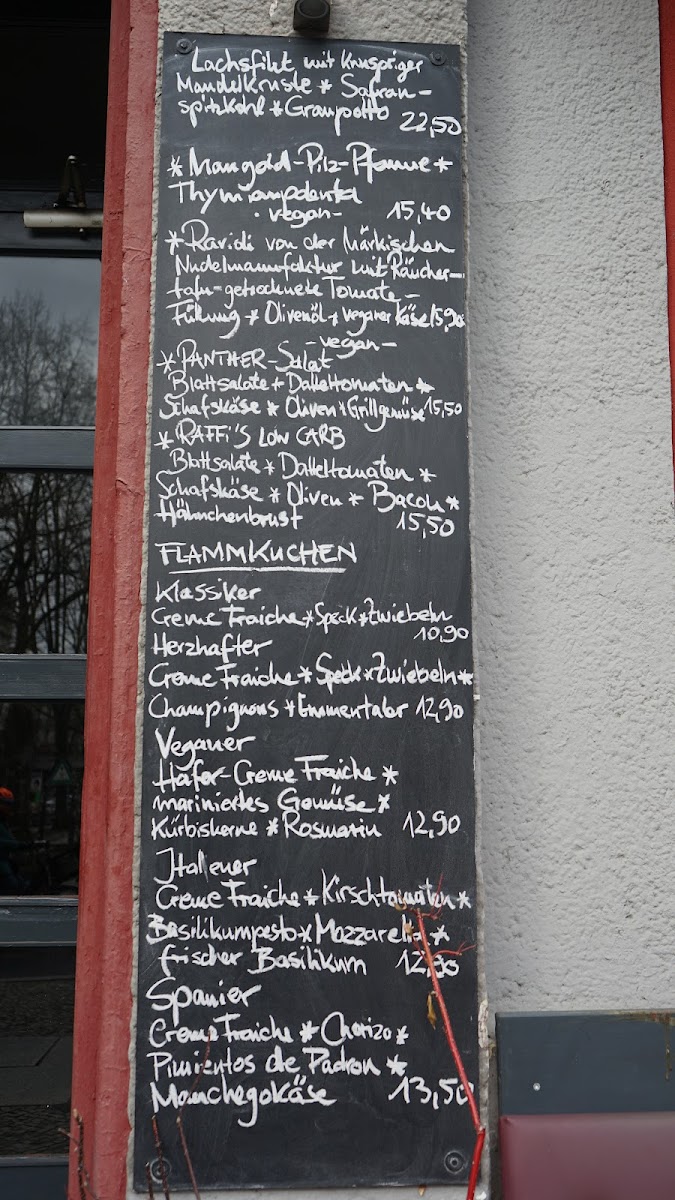 Lachsfilet mit knuspriger
Mandelkruste * Safran-
spitzkohl * Graupotto
22,50
* Mangold-Pilz-Pfanne *
Thymianpolenta
- vegan - 15,40
* Ravioli von der Märkischen
Nudelmanufaktur mit Räucher-
tofu-getrocknete Tomate-
Füllung * Olivenöl * veganer Käse 15,90
- vegan -
* PANTHER-Salat
Blattsalate * Datteltomaten *
Schafskäse * Oliven * Grillgemüse 15,50
* RAFFI'S LOW CARB
Blattsalate * Datteltomaten *
Schafskäse * Oliven * Bacon *
Hähnchenbrust 15,50
FLAMMKUCHEN
Klassiker
Creme Fraiche * Speck * Zwiebeln
10,90
Herzhafter
Creme Fraiche * Speck * Zwiebeln *
Champignons * Emmentaler 12,90
Veganer
Hafer-Creme Fraiche *
mariniertes Gemüse *
Kürbiskerne * Rosmarin 12,90
Italiener
Creme Fraiche * Kirschtomaten *
Basilikumpesto * Mozzarella *
frischer Basilikum 12,90
Spanier
Creme Fraiche * Chorizo *
Pimientos de Padron *
Manchegokäse 13,50